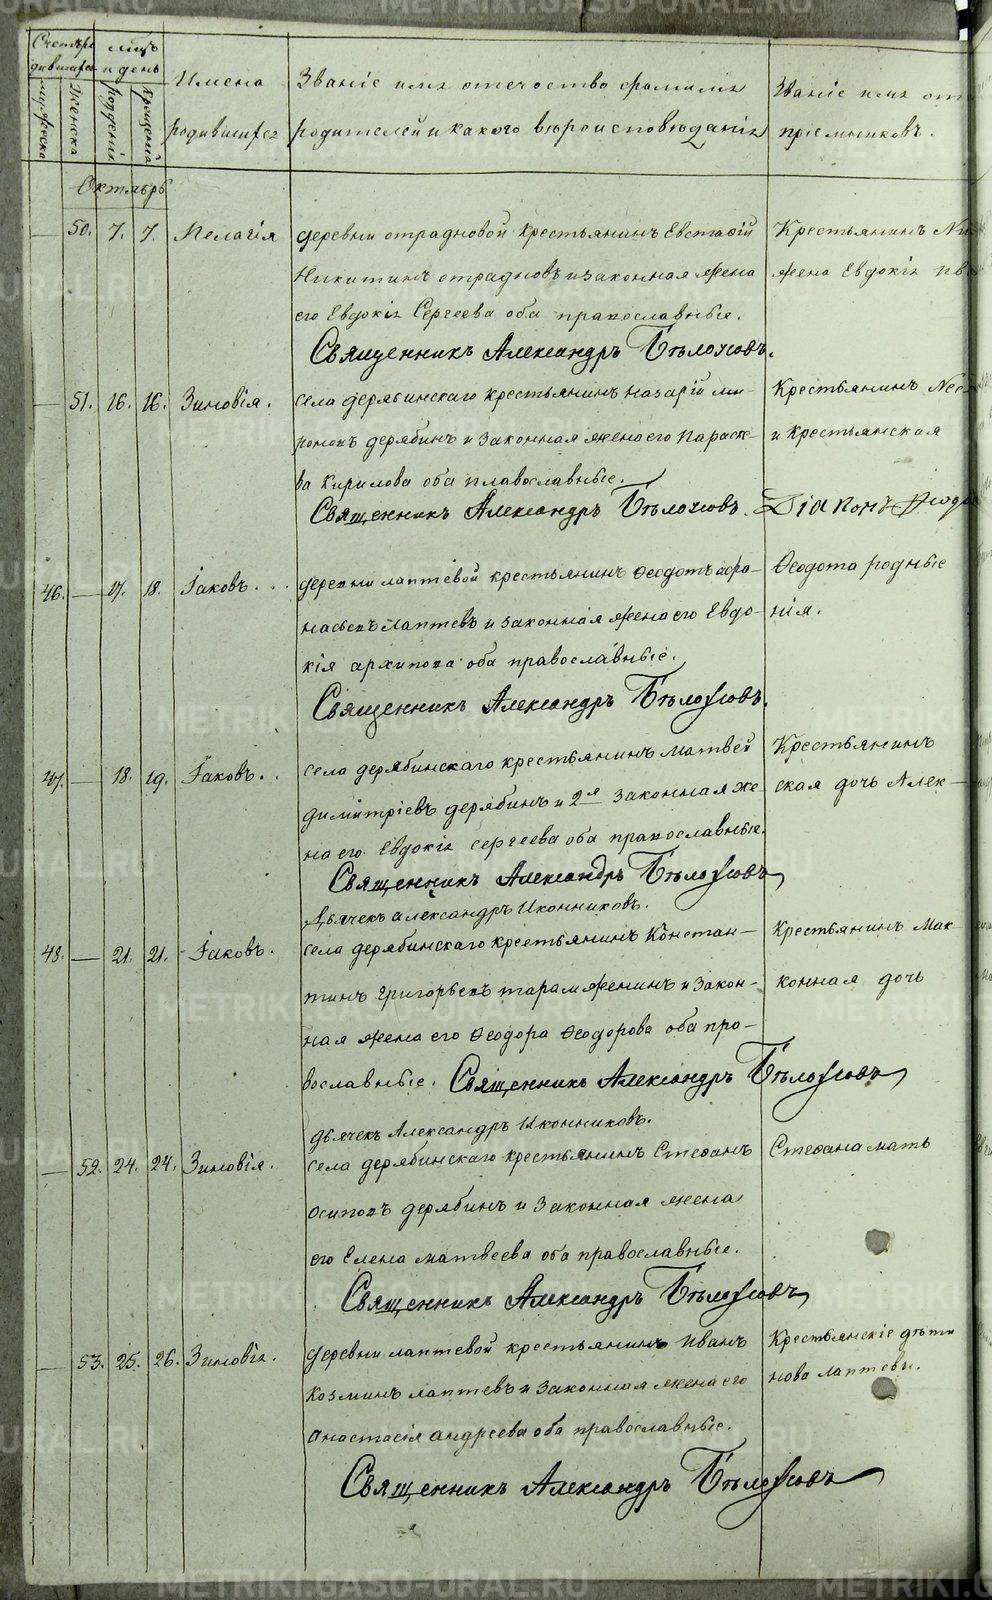 METRIKI.GASO-URAL.RU
Счетъ ро
дившихся
мѣсяцъ
и день
мужеска
женска
рожденія
крещенія
Имена
родившихся
Званіе имя отечество фамилія
родителей и какого вѣроисповѣданія
Званіе имя
пріемниковъ.
Октябрь
50. 7. 7. Пелагія
деревни отрадновой крестьянинъ Евстафій
Никитинъ отрадновъ и законная жена
его Евдокія Сергеева оба православные.
Священникъ Александръ Бѣлоусовъ.
Крестьянинъ
жена Евдокія
51. 16. 16. Зиновія.
села дерябинскаго крестьянинъ назарій ми-
роновъ дерябинъ и законная жена его Параске-
ва Кирилова оба плавославные.
Священникъ Александръ Бѣлоусовъ. Діаконъ
Крестьянинъ
и крестьянская
46. — 17. 18. Іаковъ. . .
деревни лаптевой крестьянинъ Ѳеодотъ афа-
насьевъ лаптевъ и законная жена его Евдо-
кія архипова оба православные.
Священникъ Александръ Бѣлоусовъ.
Ѳеодота родные
нія.
47. — 18. 19. Іаковъ. .
села дерябинскаго крестьянинъ матвей
димитріевъ дерябинъ и 2я законная же-
на его Евдокія сергеева оба православные.
Священникъ Александръ Бѣлоусовъ
Дьячекъ александръ Иконниковъ.
Крестьянинъ
ская дочь Алек-
48. — 21. 21. Іаковъ.
села дерябинскаго крестьянинъ Констан-
тинъ григорьевъ тарамженинъ и закон-
ная жена его Ѳеодора Ѳеодорова оба пра-
вославные. Священникъ Александръ Бѣлоусовъ
дьячекъ Александръ Иконниковъ.
Крестьянинъ Мак-
конная дочь
— 52. 24. 24. Зиновія.
села дерябинскаго крестьянинъ Стефанъ
осиповъ дерябинъ и законная жена
его Елена матвеева оба православные.
Священникъ Александръ Бѣлоусовъ
Стефана мать
— 53. 25. 26. Зиновія.
деревни лаптевой крестьянинъ иванъ
козминъ лаптевъ и законная жена его
анастасія андреева оба православные.
Священникъ Александръ Бѣлоусовъ
Крестьянскіе дѣти
нова лаптевы.
METRIKI.GASO-URAL.RU